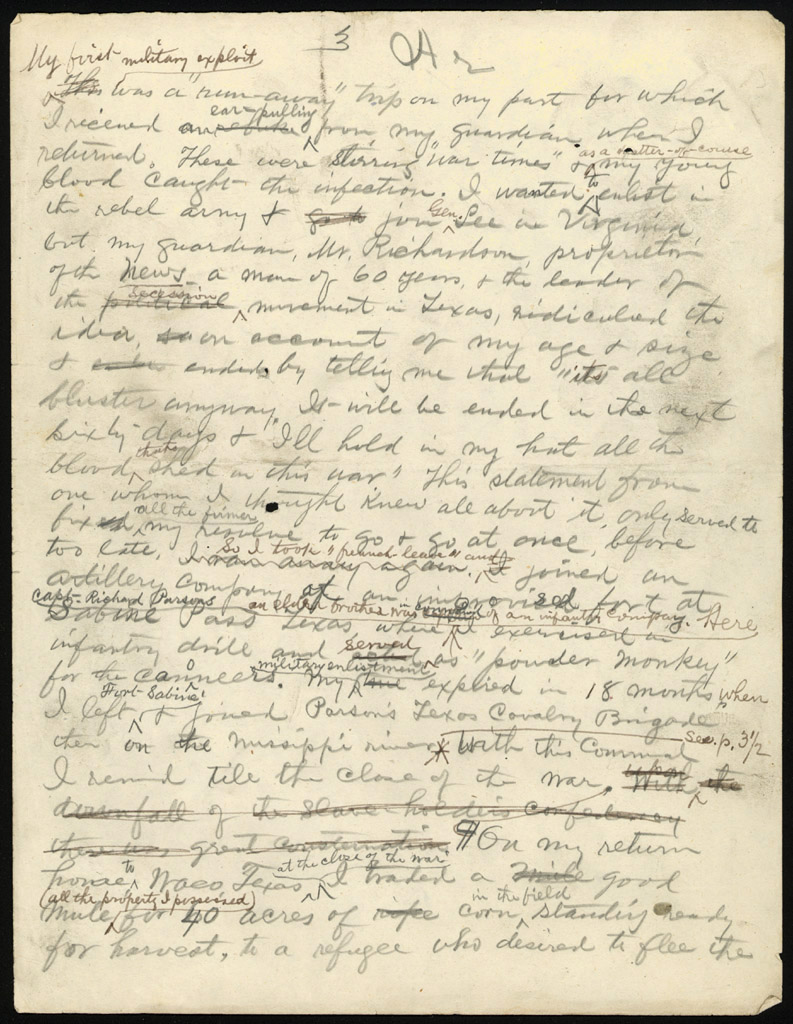 3
My first military exploit
This was a "run-away" trip on my part for which
I received ear-pulling from my guardian when I
returned. These were stirring "war times" & as a matter-of-course my young
blood caught the infection. I wanted to enlist in
the rebel army & go to join Gen. Lee in Virginia
but my guardian, Mr. Richardson, proprietor
of the News a man of 60 years, & the leader of
the political secession movement in Texas, ridiculed the
idea, on account of my age & size
& ended by telling me that "it's all
bluster anyway, It will be ended in the next
sixty days & I'll hold in my hat all the
blood thats shed in this war." This statement from
one whom I thought knew all about it, only served to
fix all the firmer my resolve to go & go at once, before
too late. I ran away again. So I took "french leave" and joined an
artillery company at an improvised fort at
Sabine Pass Texas where Capt. Richard Parsons an elder brother was of an infantry company. Here I exercised in
infantry drill and served as "powder monkey"
for the canoneers. My military enlistment time expired in 18 months when
I left Fort Sabine & joined Parson's Texas Cavalry Brigade
then on the Missippi river. See. p. 3½ With this Command
I remind tile the close of the war. With upon the
downfall of the slave holders confederacy
there was great consternation. ¶ On my return
home to Waco, Texas, at the close of the war I traded a mule good
mule (all the property I possessed) for 40 acres of ripe corn, in the field standing ready
for harvest, to a refugee who desired to flee the